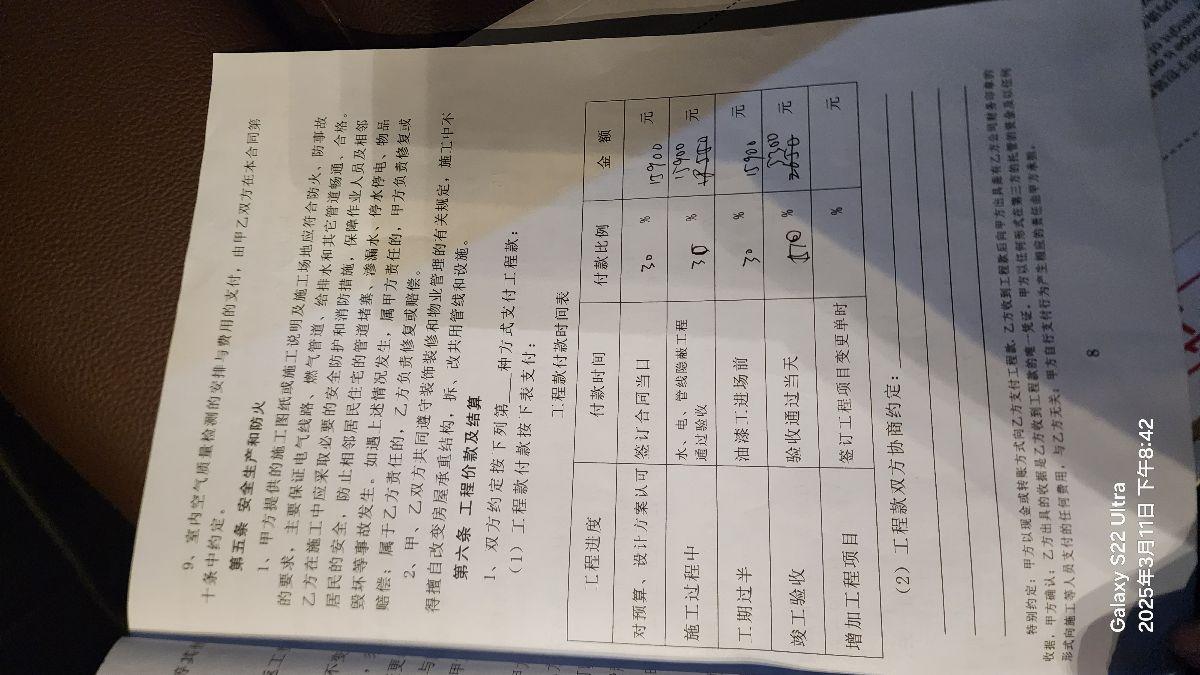 9、室内空气质量检测的安排与费用的支付，由甲乙双方在本合同第
十条中约定。
第五条 安全生产和防火
1、甲方提供的施工图纸或施工说明及施工场地应符合防火、防事故
的要求，主要保证电气线路、燃气管道、给排水和其它管道畅通、合格。
乙方在施工中应采取必要的安全防护和消防措施，保障作业人员及相邻
居民的安全，防止相邻居民住宅的管道堵塞、渗漏水、停水停电、物品
毁坏等事故发生。如遇上述情况发生，属甲方责任的，甲方负责修复或
赔偿；属于乙方责任的，乙方负责修复或赔偿。
2、甲、乙双方共同遵守装饰装修和物业管理的有关规定，施工中不
得擅自改变房屋承重结构，拆、改共用管线和设施。
第六条 工程价款及结算
1、双方约定按下列第___种方式支付工程款：
（1）工程款付款按下表支付：
工程款付款时间表
工程进度 付款时间 付款比例 金 额
对预算、设计方案认可 签订合同当日 30 % 15900 元
施工过程中 水、电、管线隐蔽工程 30 % 15900 元
通过验收
工期过半 油漆工进场前 30 % 15900 元
竣工验收 验收通过当天 10 % 元
增加工程项目 签订工程项目变更单时 % 元
（2）工程款双方协商约定：
特别约定：甲方以现金或转账方式向乙方支付工程款，乙方收到工程款后向甲方出具盖有乙方公司财务印章的
收据，甲方确认：乙方出具的收据是乙方收到工程款的唯一凭证，甲方以任何形式在第三方的托管的资金及以任何
形式向施工等人员支付的任何费用，与乙方无关，甲方自行支付行为产生相应的责任由甲方承担。
8
Galaxy S22 Ultra
2025年3月11日 下午8:42